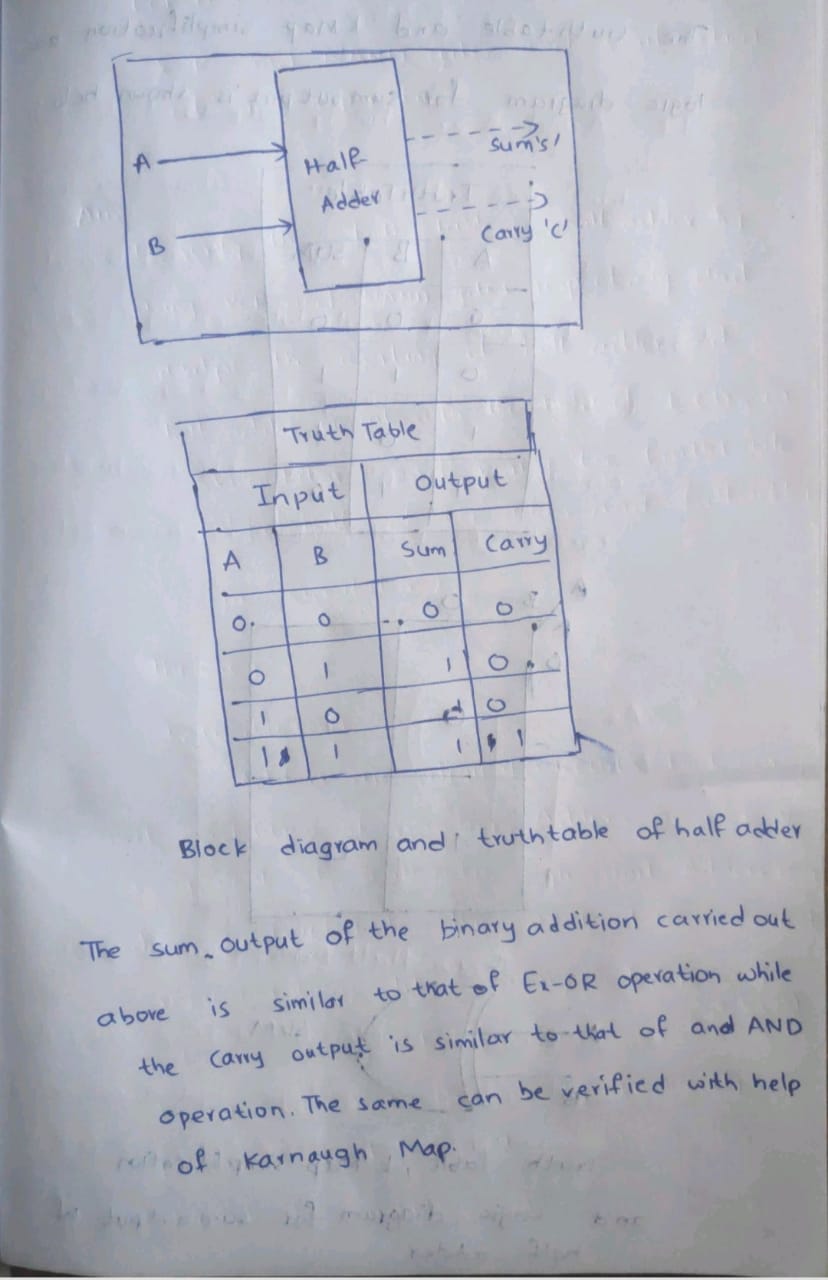 A
B
Half
Adder
Sum's'
Carry 'C'
Truth Table
Input Output
A B Sum Carry
0 0 0 0
0 1 1 0
1 0 0
1 1 1 1
Block diagram and truthtable of half adder
The sum output of the binary addition carried out
above is similar to that of Ex-OR operation while
the Carry output is similar to that of and AND
operation. The same can be verified with help
of Karnaugh Map.